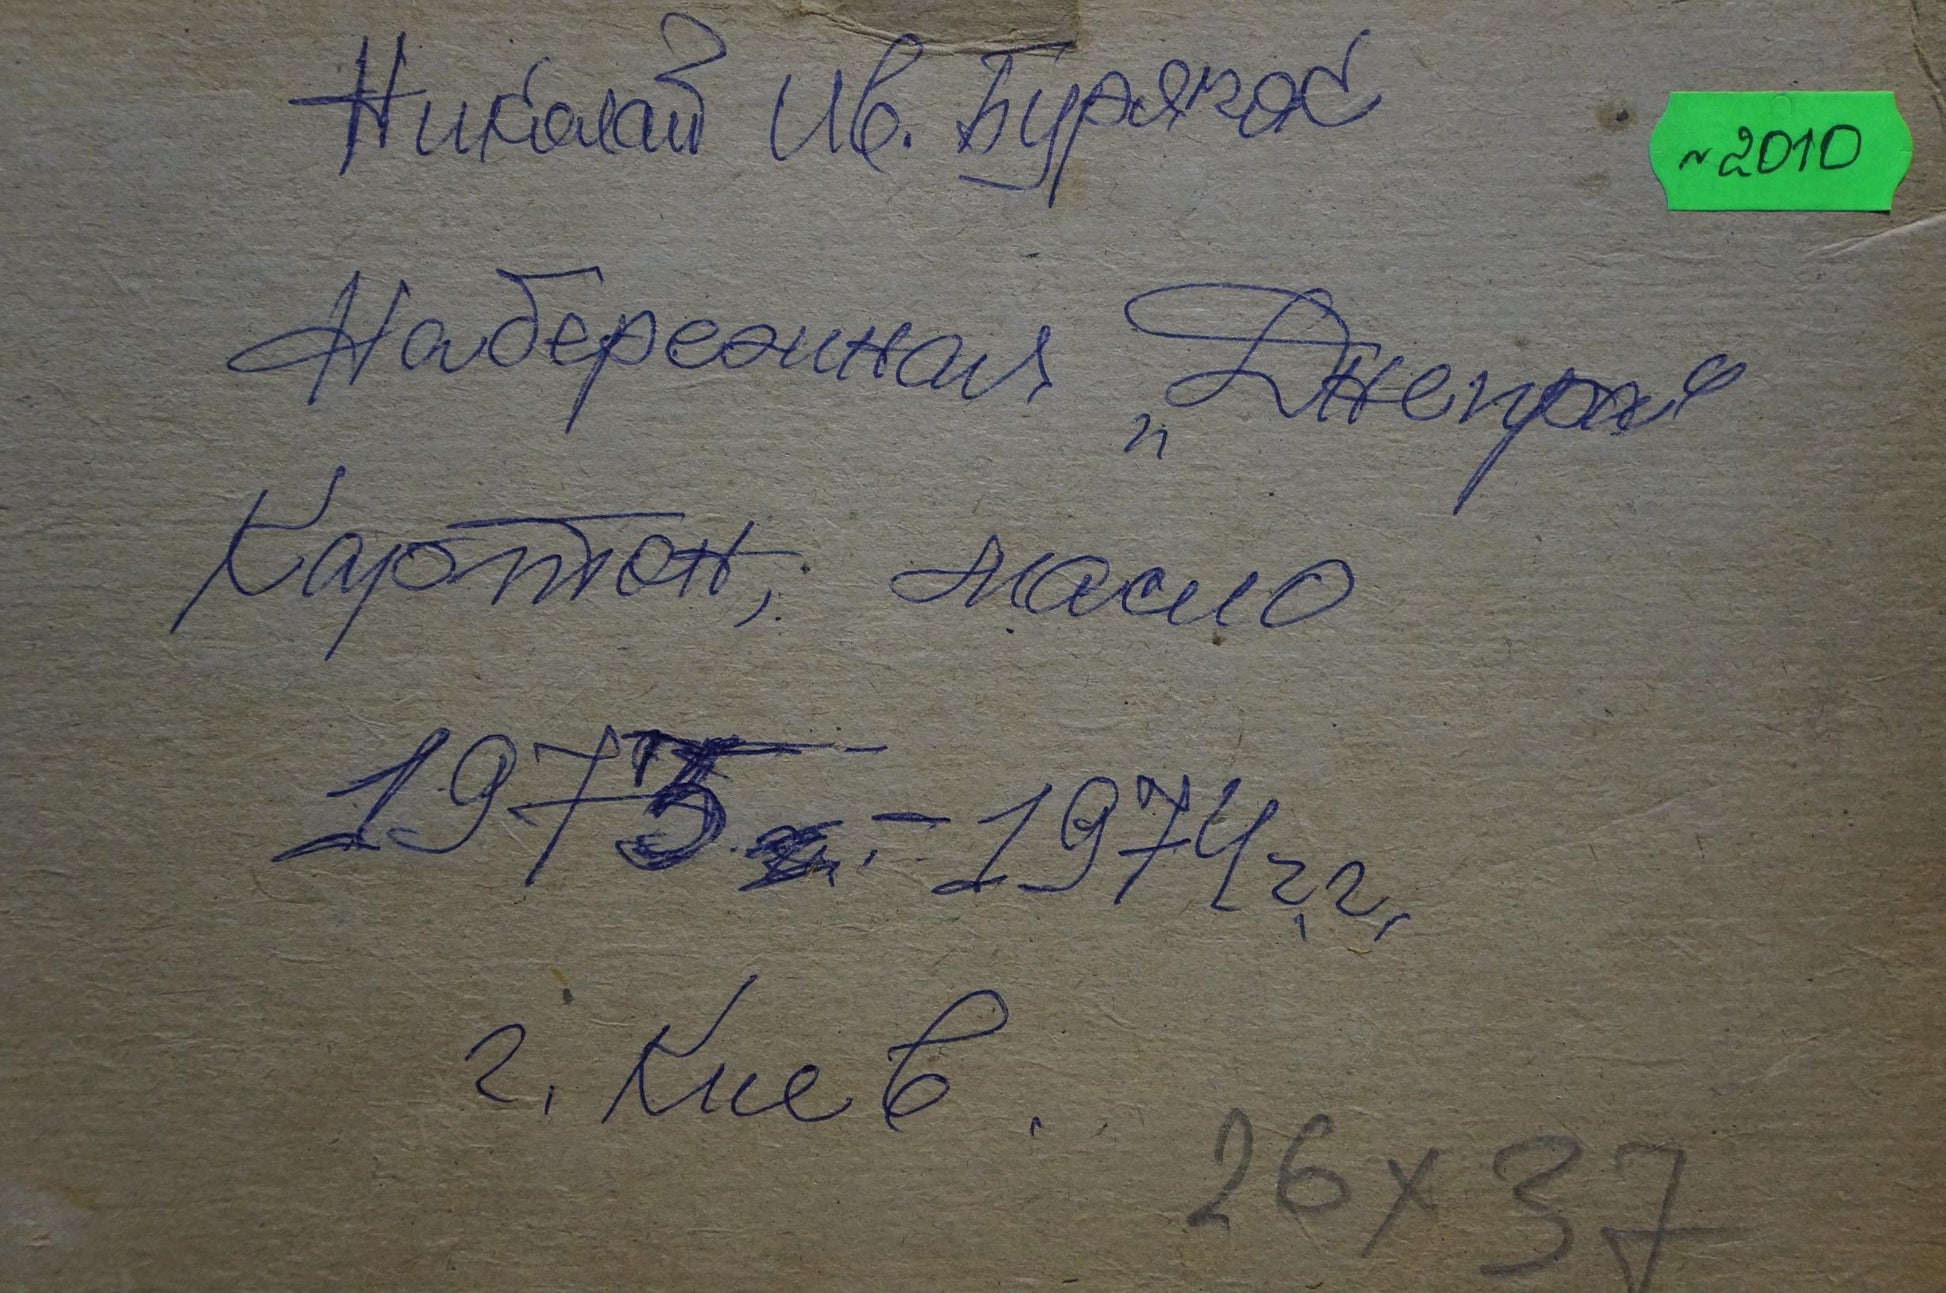 Николай Ив. Бурячок
№2010
Набережная „Днепра“
Картон, масло
- 1974 г.г.
г. Киев.
26 х 37